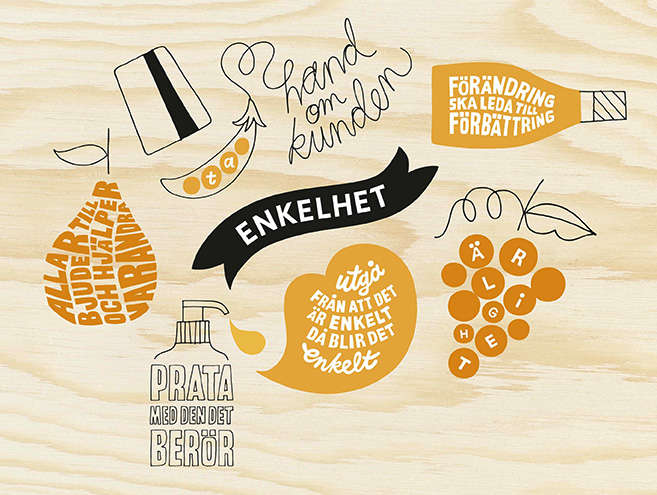 ta
hand
om
kunden
FÖRÄNDRING
SKA LEDA TILL
FÖRBÄTTRING
ENKELHET
ALLA
BJUDER TILL
OCH HJÄLPER
VARANDRA
utgå
FRÅN ATT DET
ÄR ENKELT
DÅ BLIR DET
enkelt
ÄRLIGHET
PRATA
MED DEN DET
BERÖR